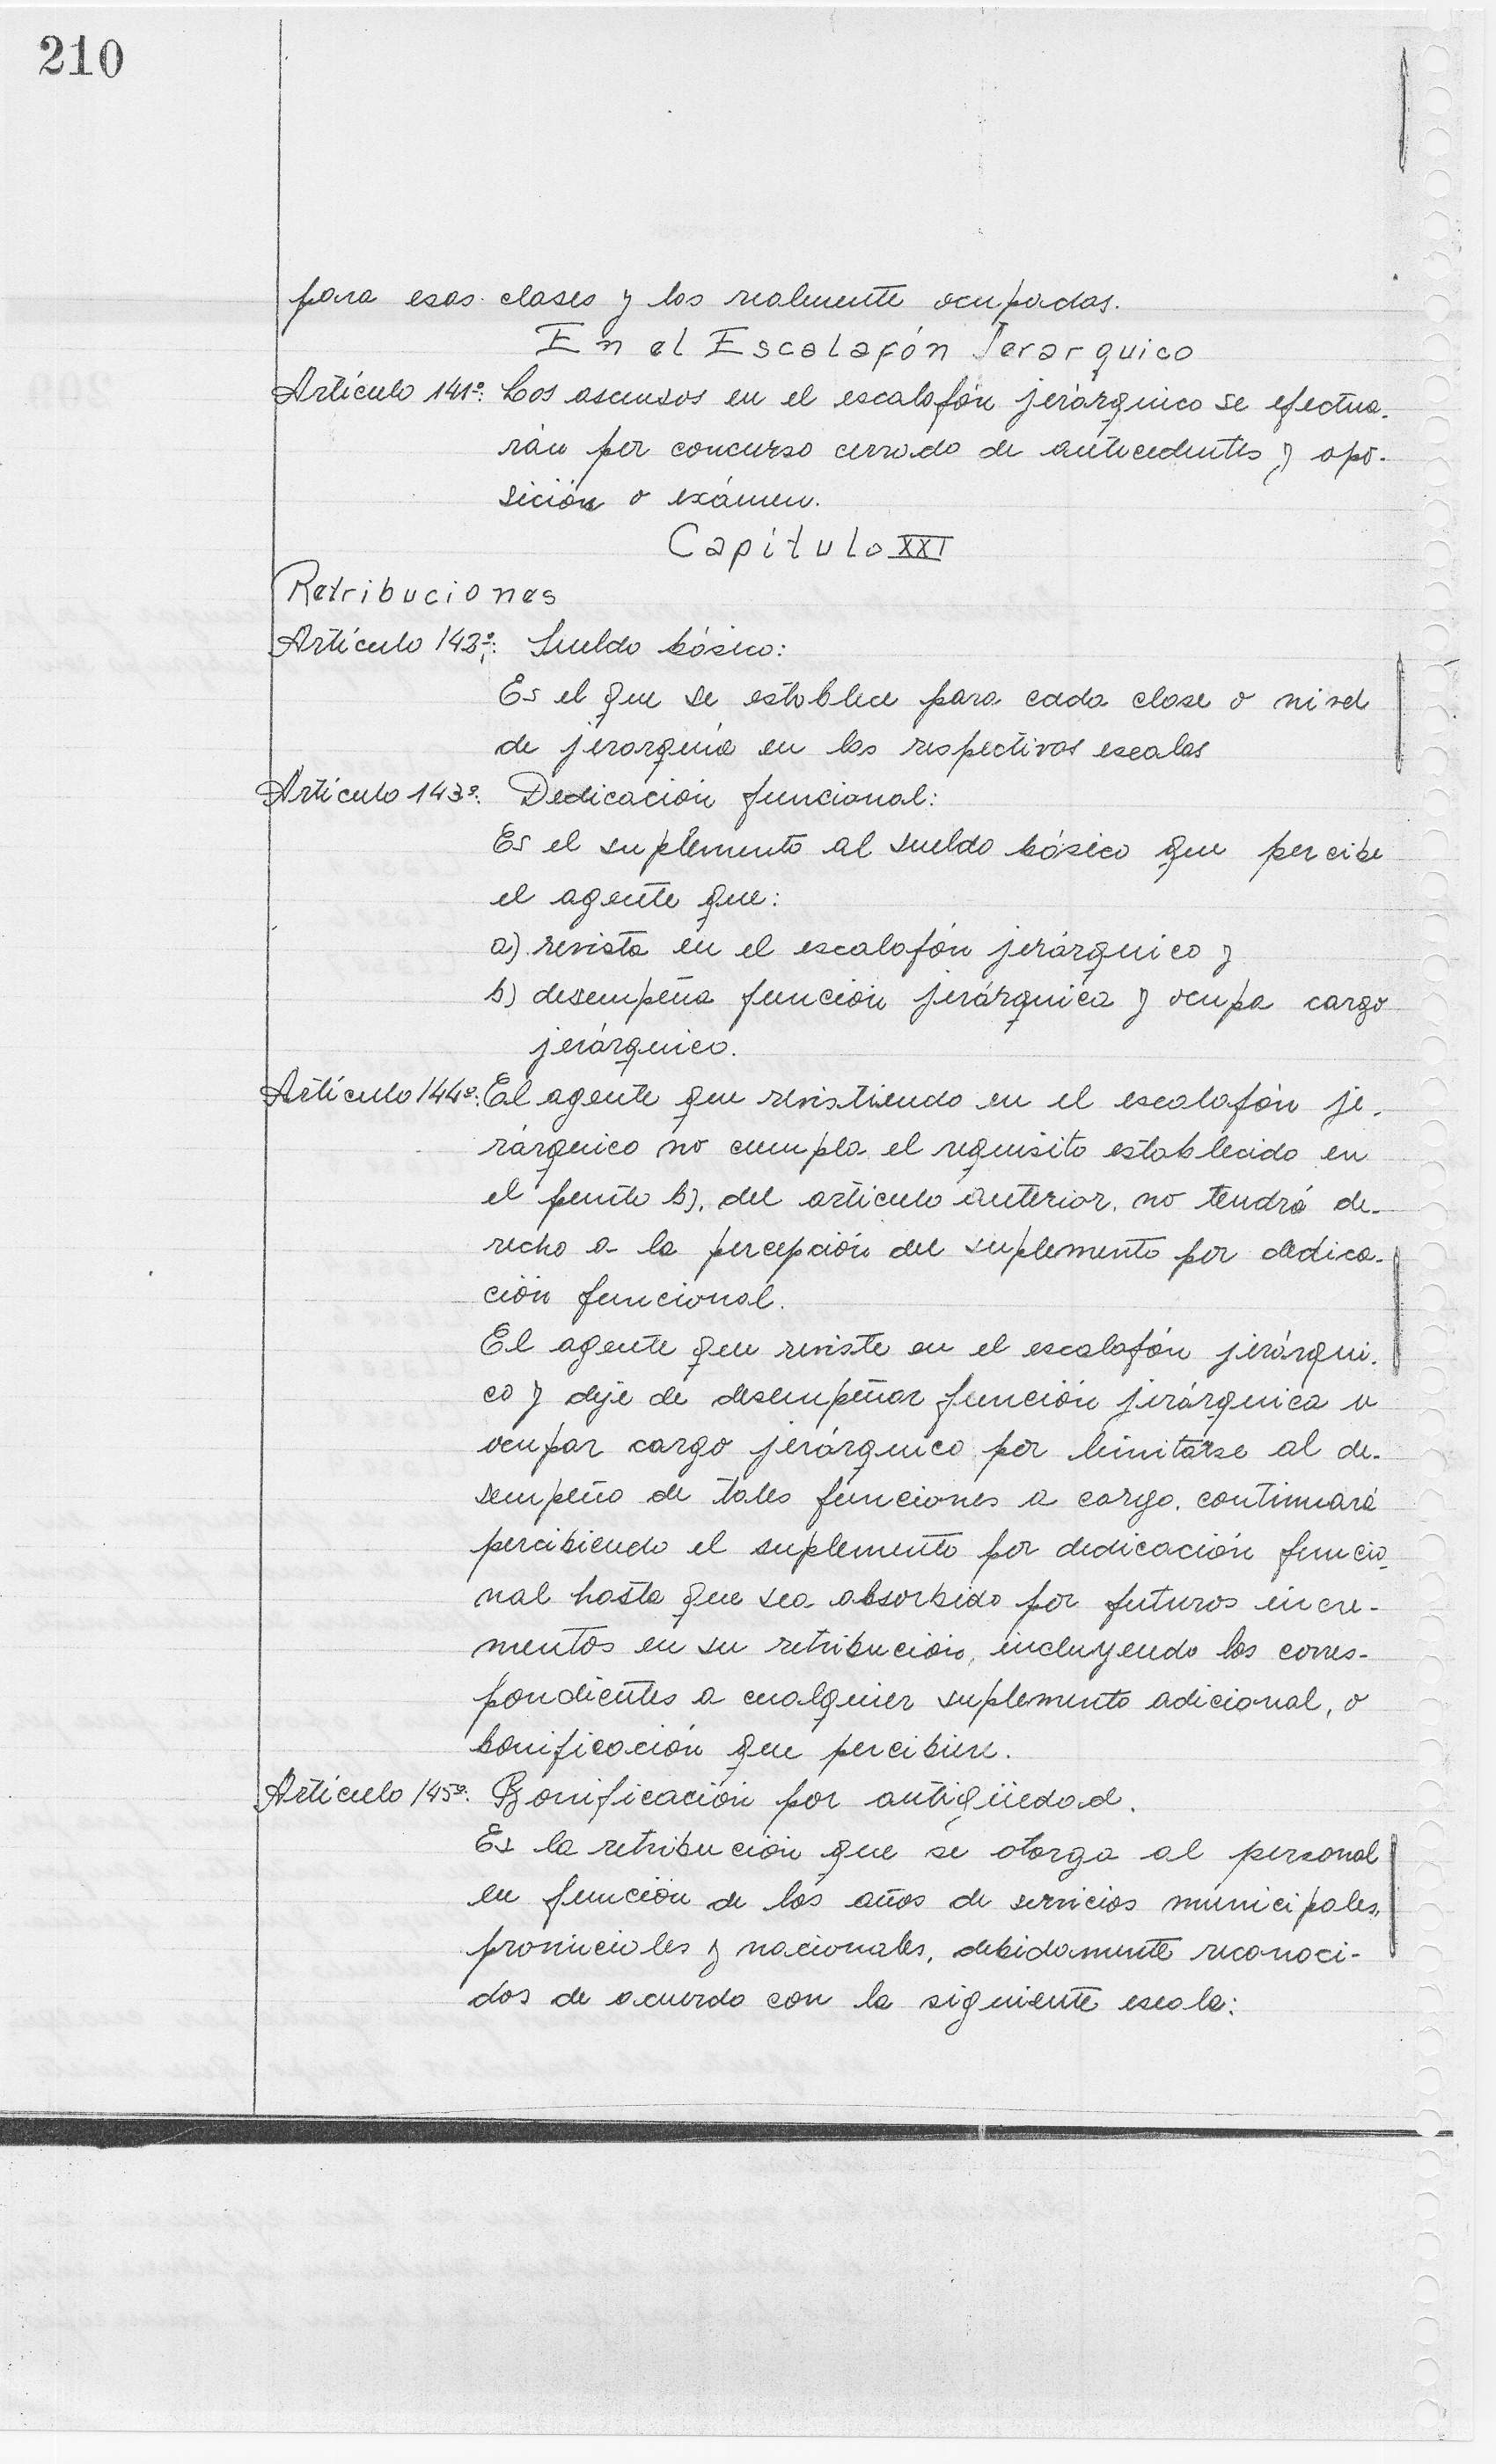 210
para esas clases y las realmente ocupadas.
En el Escalafón Jerarquico
Artículo 141º: Los ascensos en el escalafón jerárquico se efectua-
rán por concurso cerrado de antecedentes y opo-
sición o exámen.
Capítulo XXI
Retribuciones
Artículo 142º: Sueldo básico:
Es el que se establece para cada clase o nivel
de jerarquía en las respectivas escalas
Artículo 143º: Dedicación funcional:
Es el suplemento al sueldo básico que percibe
el agente que:
a) revista en el escalafón jerárquico y
b) desempeña función jerárquica y ocupa cargo
jerárquico.
Artículo 144º: El agente que revistiendo en el escalafón je-
rárquico no cumpla el requisito establecido en
el punto b), del artículo anterior, no tendrá de-
recho a la percepción del suplemento por dedica-
ción funcional.
El agente que reviste en el escalafón jerárqui-
co y deje de desempeñar función jerárquica u
ocupar cargo jerárquico por limitarse al de-
sempeño de tales funciones a cargo, continuará
percibiendo el suplemento por dedicación funcio-
nal hasta que sea absorbido por futuros incre-
mentos en su retribución, incluyendo los corres-
pondientes a cualquier suplemento adicional, o
bonificación que percibiere.
Artículo 145º: Bonificación por antigüedad.
Es la retribución que se otorga al personal
en función de los años de servicios municipales,
provinciales y nacionales, debidamente reconoci-
dos de acuerdo con la siguiente escala: